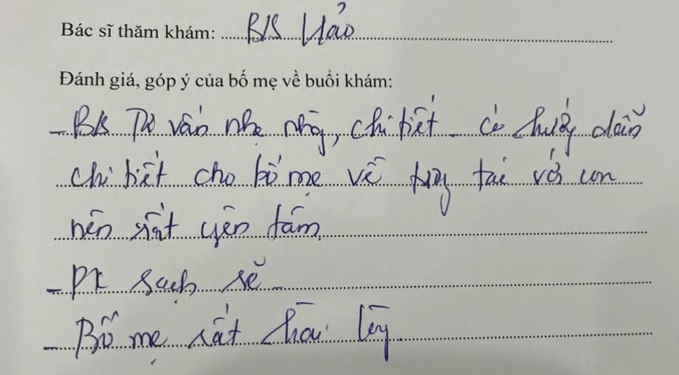 Bác sĩ thăm khám: BS Hảo
Đánh giá, góp ý của bố mẹ về buổi khám:
- BS Tư vấn nhẹ nhàng, chi tiết. Có hướng dẫn
chi tiết cho bố mẹ về tương tác với con
nên rất yên tâm
- PK sạch sẽ
- Bố mẹ rất hài lòng